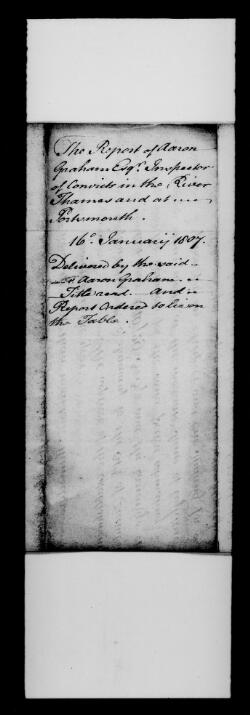 The Report of Aaron
Graham Esqr. Inspector
of Convicts in the River
Thames and at
Portsmouth.
16o. January 1807.
Delivered by the said
Aaron Graham
Title read. And
Report Ordered to lie on
the Table.